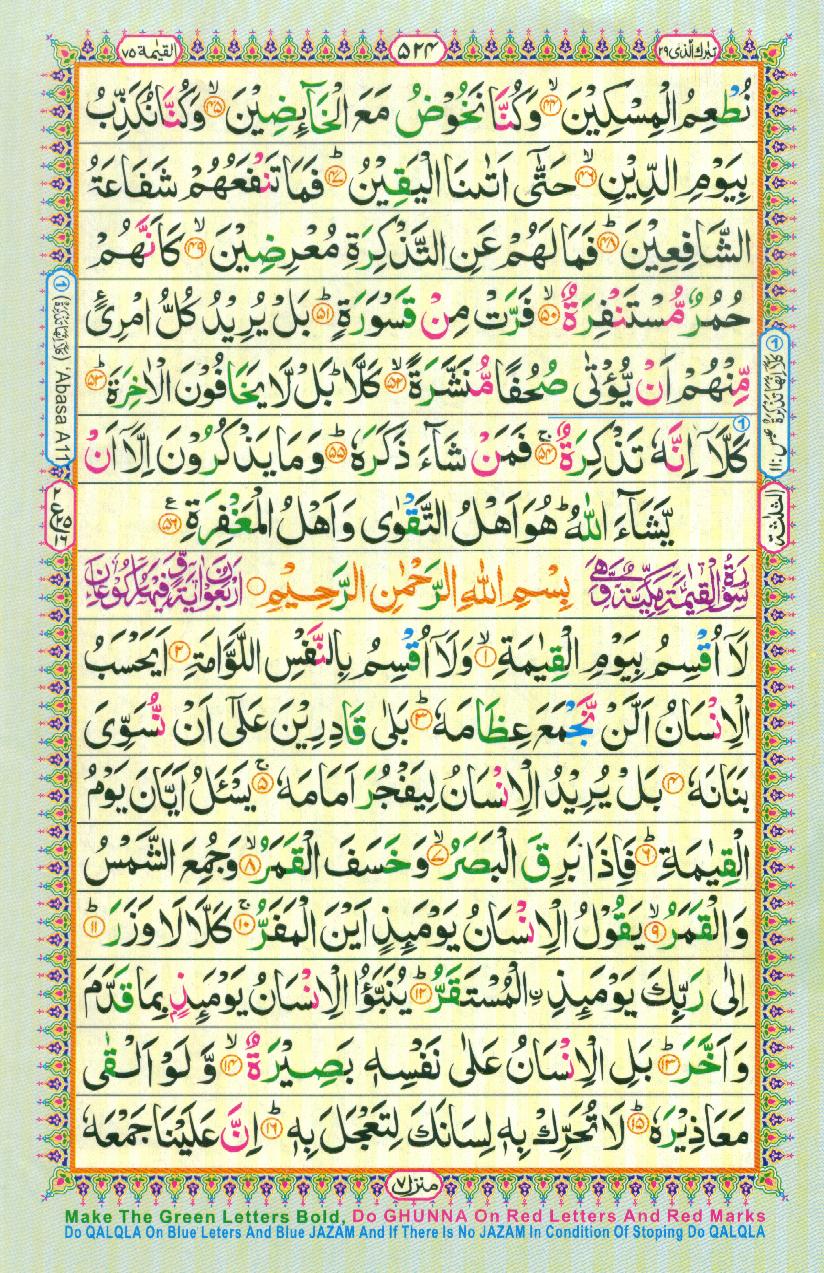 تبٰرك الّذى ۲۹
۵۲۴
القيٰمة ۷۵
نُطْعِمُ الْمِسْكِيْنَ ۙ۴۴ وَكُنَّا نَخُوْضُ مَعَ الْخَآئِضِيْنَ ۙ۴۵ وَكُنَّا نُكَذِّبُ
بِيَوْمِ الدِّيْنِ ۙ۴۶ حَتّٰٓى اَتٰىنَا الْيَقِيْنُ ؕ۴۷ فَمَا تَنْفَعُهُمْ شَفَاعَةُ
الشَّافِعِيْنَ ؕ۴۸ فَمَا لَهُمْ عَنِ التَّذْكِرَةِ مُعْرِضِيْنَ ۙ۴۹ كَاَنَّهُمْ
حُمُرٌ مُّسْتَنْفِرَةٌ ۙ۵۰ فَرَّتْ مِنْ قَسْوَرَةٍ ؕ۵۱ بَلْ يُرِيْدُ كُلُّ امْرِئٍ
مِّنْهُمْ اَنْ يُّؤْتٰى صُحُفًا مُّنَشَّرَةً ۙ۵۲ كَلَّا ؕ بَلْ لَّا يَخَافُوْنَ الْاٰخِرَةَ ؕ۵۳
كَلَّاۤ اِنَّهٗ تَذْكِرَةٌ ۚ۵۴ فَمَنْ شَآءَ ذَكَرَهٗ ؕ۵۵ وَمَا يَذْكُرُوْنَ اِلَّاۤ اَنْ
يَّشَآءَ اللّٰهُ ؕ هُوَ اَهْلُ التَّقْوٰى وَاَهْلُ الْمَغْفِرَةِ ۵۶ ع
سُوْرَةُ الْقِيٰمَةِ مَكِّيَّةٌ وَّهِىَ
بِسْمِ اللّٰهِ الرَّحْمٰنِ الرَّحِيْمِ
اَرْبَعُوْنَ اٰيَةً وَّفِيْهَا رُكُوْعَانِ
لَاۤ اُقْسِمُ بِيَوْمِ الْقِيٰمَةِ ۙ۱ وَلَاۤ اُقْسِمُ بِالنَّفْسِ اللَّوَّامَةِ ؕ۲ اَيَحْسَبُ
الْاِنْسَانُ اَلَّنْ نَّجْمَعَ عِظَامَهٗ ؕ۳ بَلٰى قَادِرِيْنَ عَلٰٓى اَنْ نُّسَوِّىَ
بَنَانَهٗ ۴ بَلْ يُرِيْدُ الْاِنْسَانُ لِيَفْجُرَ اَمَامَهٗ ۚ۵ يَسْـَٔلُ اَيَّانَ يَوْمُ
الْقِيٰمَةِ ؕ۶ فَاِذَا بَرِقَ الْبَصَرُ ۙ۷ وَخَسَفَ الْقَمَرُ ۙ۸ وَجُمِعَ الشَّمْسُ
وَالْقَمَرُ ۙ۹ يَقُوْلُ الْاِنْسَانُ يَوْمَئِذٍ اَيْنَ الْمَفَرُّ ۚ۱۰ كَلَّا لَا وَزَرَ ؕ۱۱
اِلٰى رَبِّكَ يَوْمَئِذِ ۨ الْمُسْتَقَرُّ ؕ۱۲ يُنَبَّؤُا الْاِنْسَانُ يَوْمَئِذٍۭ بِمَا قَدَّمَ
وَاَخَّرَ ؕ۱۳ بَلِ الْاِنْسَانُ عَلٰى نَفْسِهٖ بَصِيْرَةٌ ۙ۱۴ وَّلَوْ اَلْقٰى
مَعَاذِيْرَهٗ ؕ۱۵ لَا تُحَرِّكْ بِهٖ لِسَانَكَ لِتَعْجَلَ بِهٖ ؕ۱۶ اِنَّ عَلَيْنَا جَمْعَهٗ
كَلَّا اِنَّهَا تَذْكِرَةٌ
الثلٰثة
'Abasa A 11
منزل ۷
Make The Green Letters Bold, Do GHUNNA On Red Letters And Red Marks
Do QALQLA On Blue Leters And Blue JAZAM And If There Is No JAZAM In Condition Of Stoping Do QALQLA